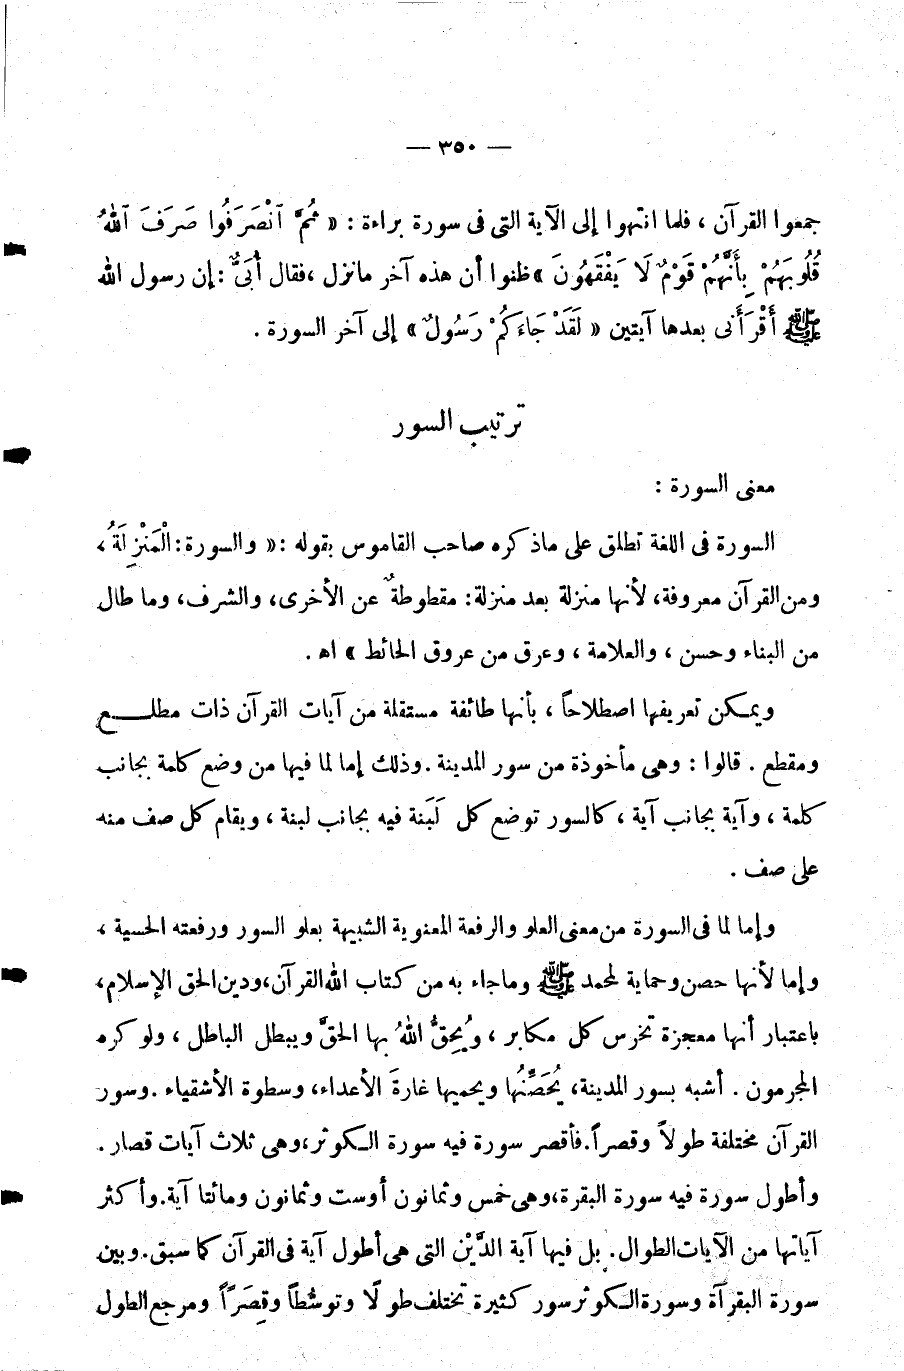 — ٣٥٠ —
جمعوا القرآن ، فلما انتهوا إلى الآية التى فى سورة براءة : « ثُمَّ ٱنْصَرَفُوا صَرَفَ ٱللهُ
قُلُوبَهُمْ بِأَنَّهُمْ قَوْمٌ لَا يَفْقَهُونَ » ظنوا أن هذه آخر مانزل ،فقال أُبَىٌّ : إن رسول الله
ﷺ أَقْرَأَنى بعدها آيتين « لَقَدْ جَاءَكُمْ رَسُولٌ » إلى آخر السورة .
ترتيب السور
معنى السورة :
السورة فى اللغة تطلق على ماذكره صاحب القاموس بقوله :« والسورة: الْمَنْزِلَةُ ،
ومن القرآن معروفة، لأنها منزلة بعد منزلة: مقطوطةٌ عن الأخرى، والشرف، وما طال
من البناء وحسن ، والعلامة ، وعرق من عروق الحائط » اه .
ويمكن تعريفها اصطلاحاً ، بأنها طائفة مستقلة من آيات القرآن ذات مطلـــع
ومقطع . قالوا : وهى مأخوذة من سور المدينة .وذلك إما لما فيها من وضع كلمة بجانب
كلمة ، وآية بجانب آية ، كالسور توضع كل لَبَنة فيه بجانب لبنة ، ويقام كل صف منه
على صف .
وإما لما فى السورة من معنى العلو والرفعة المعنوية الشبيهة بعلو السور ورفعته الحسية ،
وإما لأنها حصن وحماية لمحمد ﷺ وماجاء به من كتاب الله القرآن،ودين الحق الإسلام،
باعتبار أنها معجزة تخرس كل مكابر ، ويُحِقُّ اللهُ بها الحقَّ ويبطل الباطل ، ولو كره
المجرمون . أشبه بسور المدينة، يُحَصِّنُها ويحميها غارةَ الأعداء، وسطوة الأشقياء .وسور
القرآن مختلفة طولاً وقصراً.فأقصر سورة فيه سورة الكوثر،وهى ثلاث آيات قصار .
وأطول سورة فيه سورة البقرة،وهى خمس وثمانون أوست وثمانون ومائتا آية.وأكثر
آياتها من الآيات الطوال. بل فيها آية الدَّيْن التى هى أطول آية فى القرآن كما سبق.وبين
سورة البقرآة وسورة الكوثر سور كثيرة تختلف طولًا وتوسُّطاً وقِصَرًاً ومرجع الطول